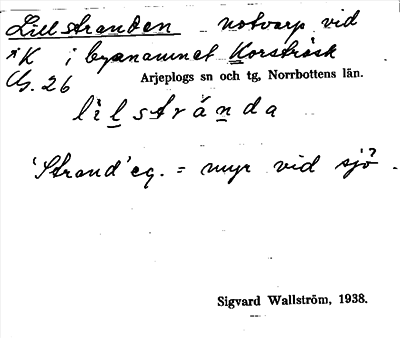 Lillstranden notvarp vid
*K i byanamnet Korsträsk
Us. 26 Arjeplogs sn och tg, Norrbottens län.
lilstránda
'Strand' eg. = myr vid sjö?.
Sigvard Wallström, 1938.